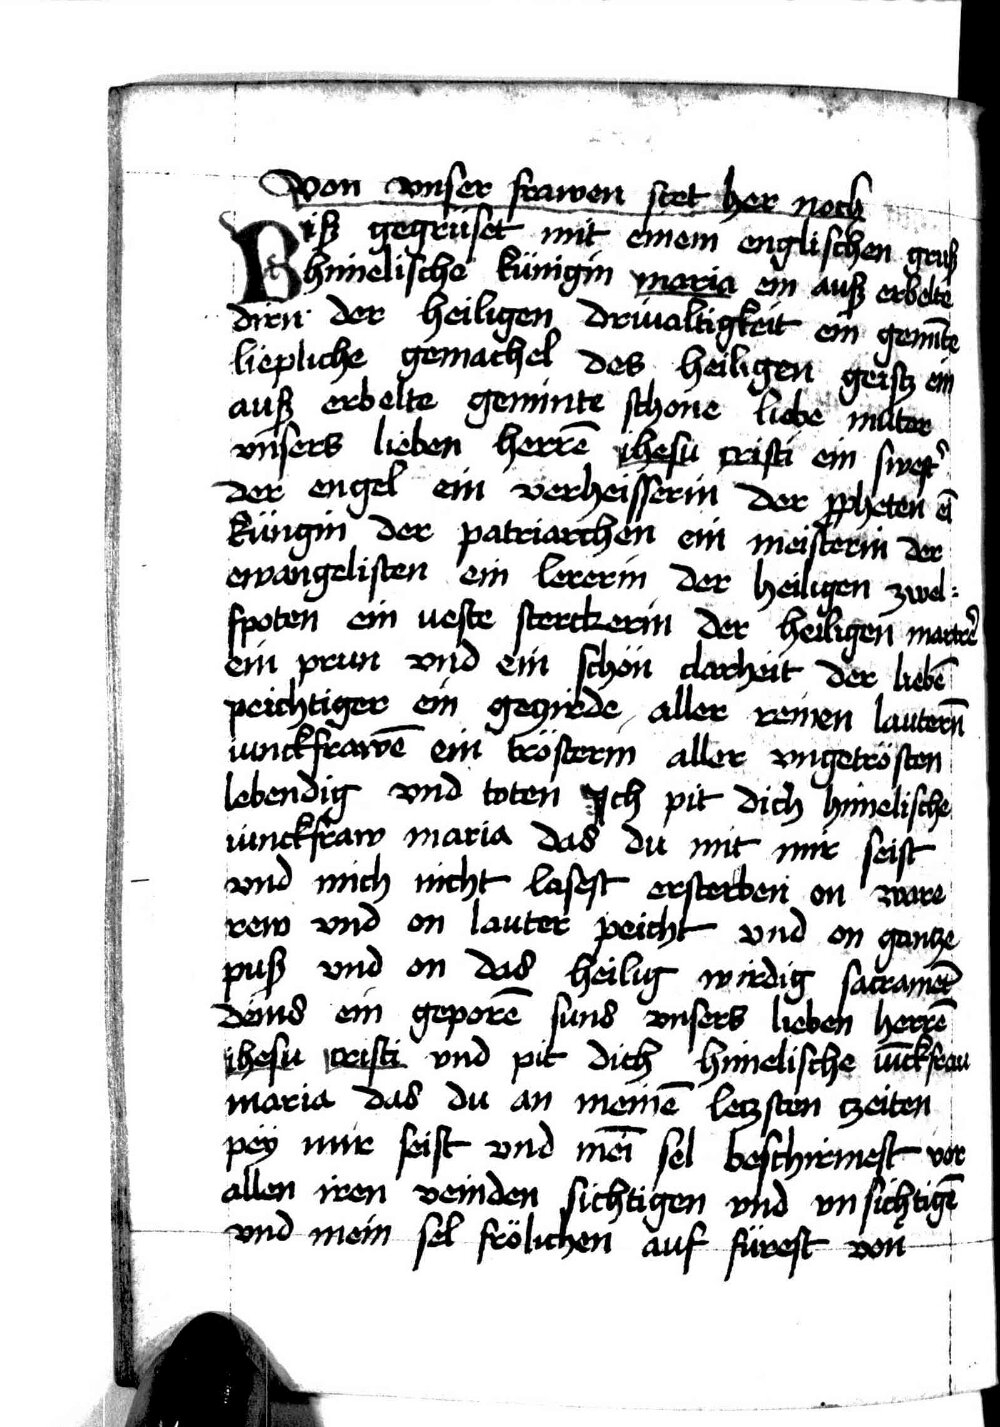 Von vnser frawen stet her noch
Biß gegrüset mit einem englischen gruß
himelische künigin maria ein auß erbelte
dirn der heiligen driualtigkeit ein gemīte
liepliche gemachel des heiligen geistz ein
auß erbelte geminte schone liebe muter
vnsers lieben herrē ihesu cristi ein swest̾
der engel ein verheisserin der ꝓpheten eī
küngin der patriarchen ein meisterin der
ewangelisten ein lererin der heiligen zwel-
fpoten ein ueste sterckerin der heiligen martrē
ein prun vnd ein schön clarheit der liebē
peichtiger ein gezirde aller reinen lauterñ
iunckfrawē ein trösterin aller vngetrösten
lebendig vnd toten Ich pit dich himelische
iunckfraw maria das du mit mir seist
vnd mich nicht lasest ersterben on ware
rew vnd on lauter peicht vnd on gantze
puß vnd on das heilig wirdig sacramēt
deins ein geporē suns vnsers lieben herrē
ihesu cristi vnd pit dich himelische iūckfrau
maria das du an meinē letzsten tzeiten
pey mir seist vnd meī sel beschirmest vor
allen iren veinden sichtigen vnd vn sichtigē
vnd mein sel frölichen auf fürest von